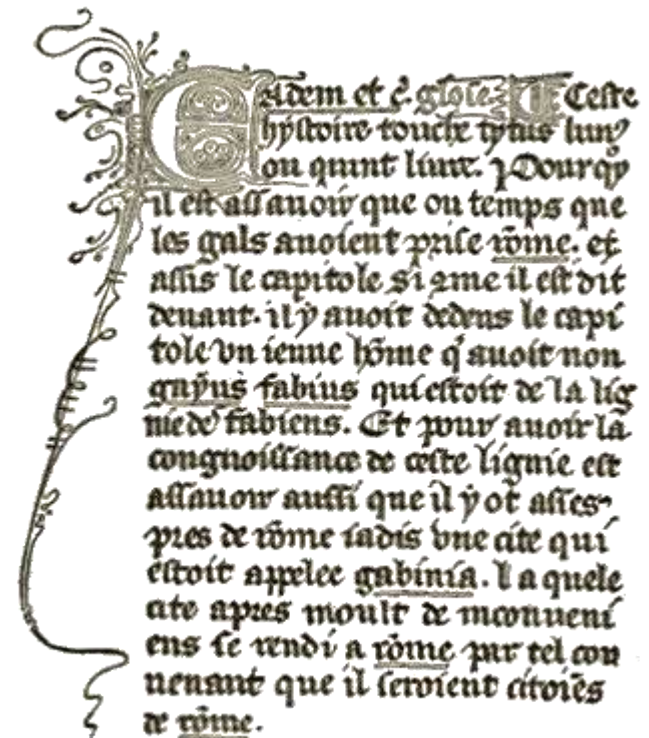 Eadem et c̄. glose. Ceste
hystoire touche tytus liuus
ou quint liure. Pourqoy
il est assauoir que ou temps que
les gals auoient prise rōme. et
assis le capitole si 9me il est dit
deuant. il y auoit dedens le capi
tole vn ieune hōme q̄ auoit non
gayus fabius qui estoit de la lig
nie de fabiens. Et pour auoir la
congnoissance de ceste lignie est
assauoir aussi que il y ot asses
pres de rōme iadis vne cite qui
estoit appelee gabinia. la quele
cite apres moult de inconueni
ens se rendi a rōme par tel con
uenant que il seroient citoiēs
de rōme.